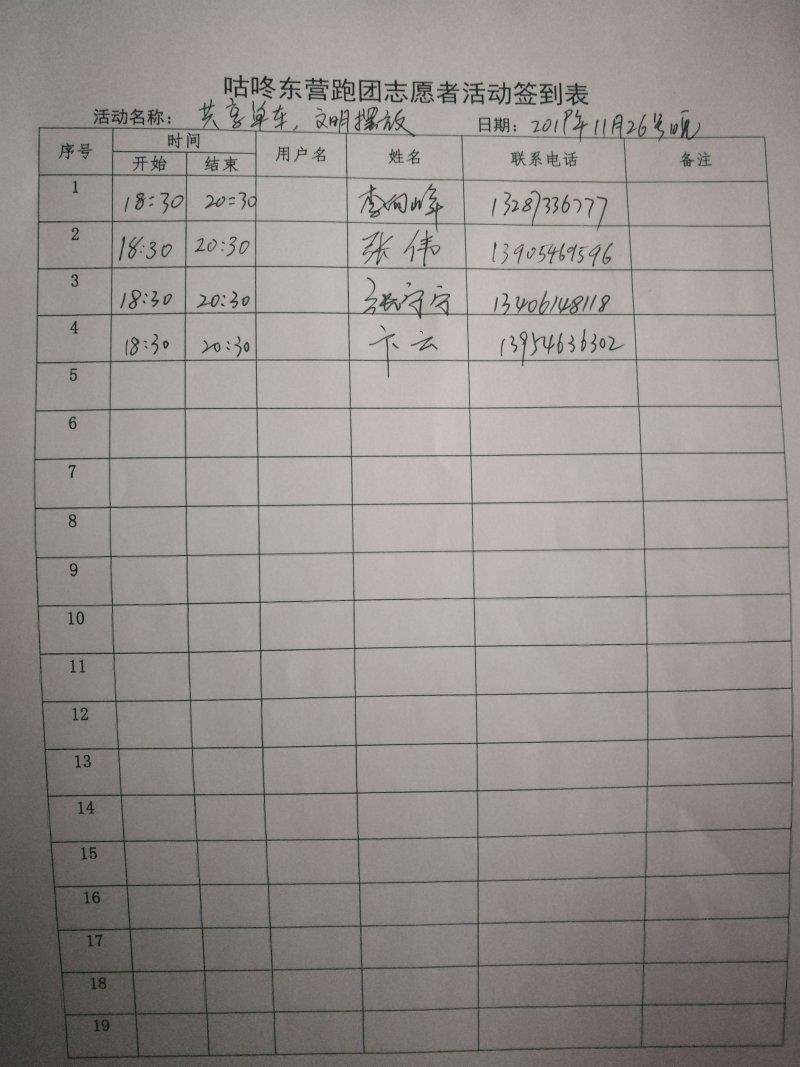 咕咚东营跑团志愿者活动签到表
活动名称： 共享单车，文明摆放 日期：2019年11月26号晚
序号 时间 用户名 姓名 联系电话 备注
开始 结束
1 18:30 20:30 李向峰 13287336777
2 18:30 20:30 张伟 13905469596
3 18:30 20:30 张宁宁 13406148118
4 18:30 20:30 卞云 13954636302
5
6
7
8
9
10
11
12
13
14
15
16
17
18
19